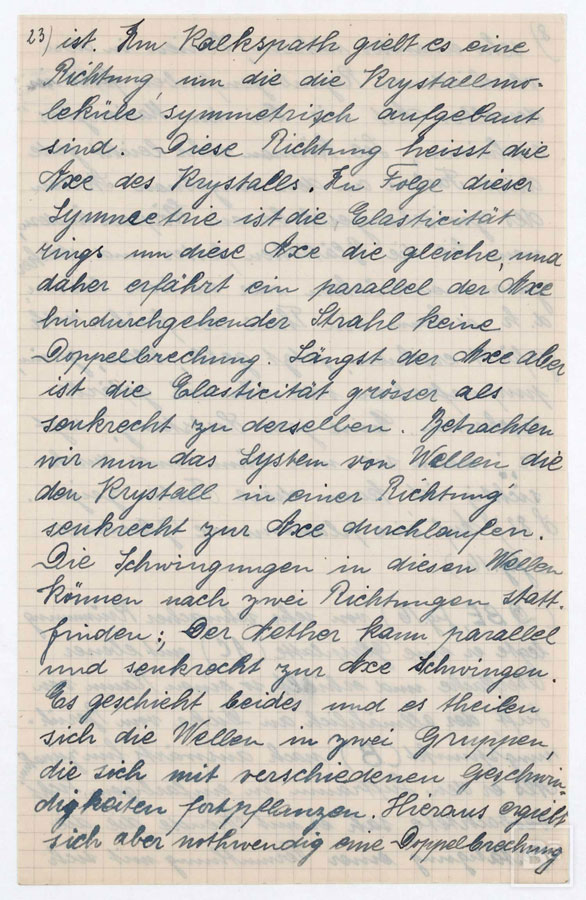 23) ist. Im Kalkspath gielt es eine
Richtung, um die die Krystallmo-
leküle symmetrisch aufgebaut
sind. Diese Richtung heisst die
Axe des Krystalls. In Folge dieser
Symmetrie ist die Elasticität
rings um diese Axe die gleiche, und
daher erfährt ein parallel der Axe
hindurchgehender Strahl keine
Doppelbrechung. Längst der Axe aber
ist die Elasticität grösser als
senkrecht zu derselben. Betrachten
wir nun das System von Wellen, die
den Krystall in einer Richtung
senkrecht zur Axe durchlaufen.
Die Schwingungen in diesen Wellen
können nach zwei Richtungen statt-
finden; Der Aether kann parallel
und senkrecht zur Axe schwingen.
Es geschieht beides und es theilen
sich die Wellen in zwei Gruppen,
die sich mit verschiedenen Geschwin-
digkeiten fortpflanzen. Hieraus ergiebt
sich aber nothwendig eine Doppelbrechung